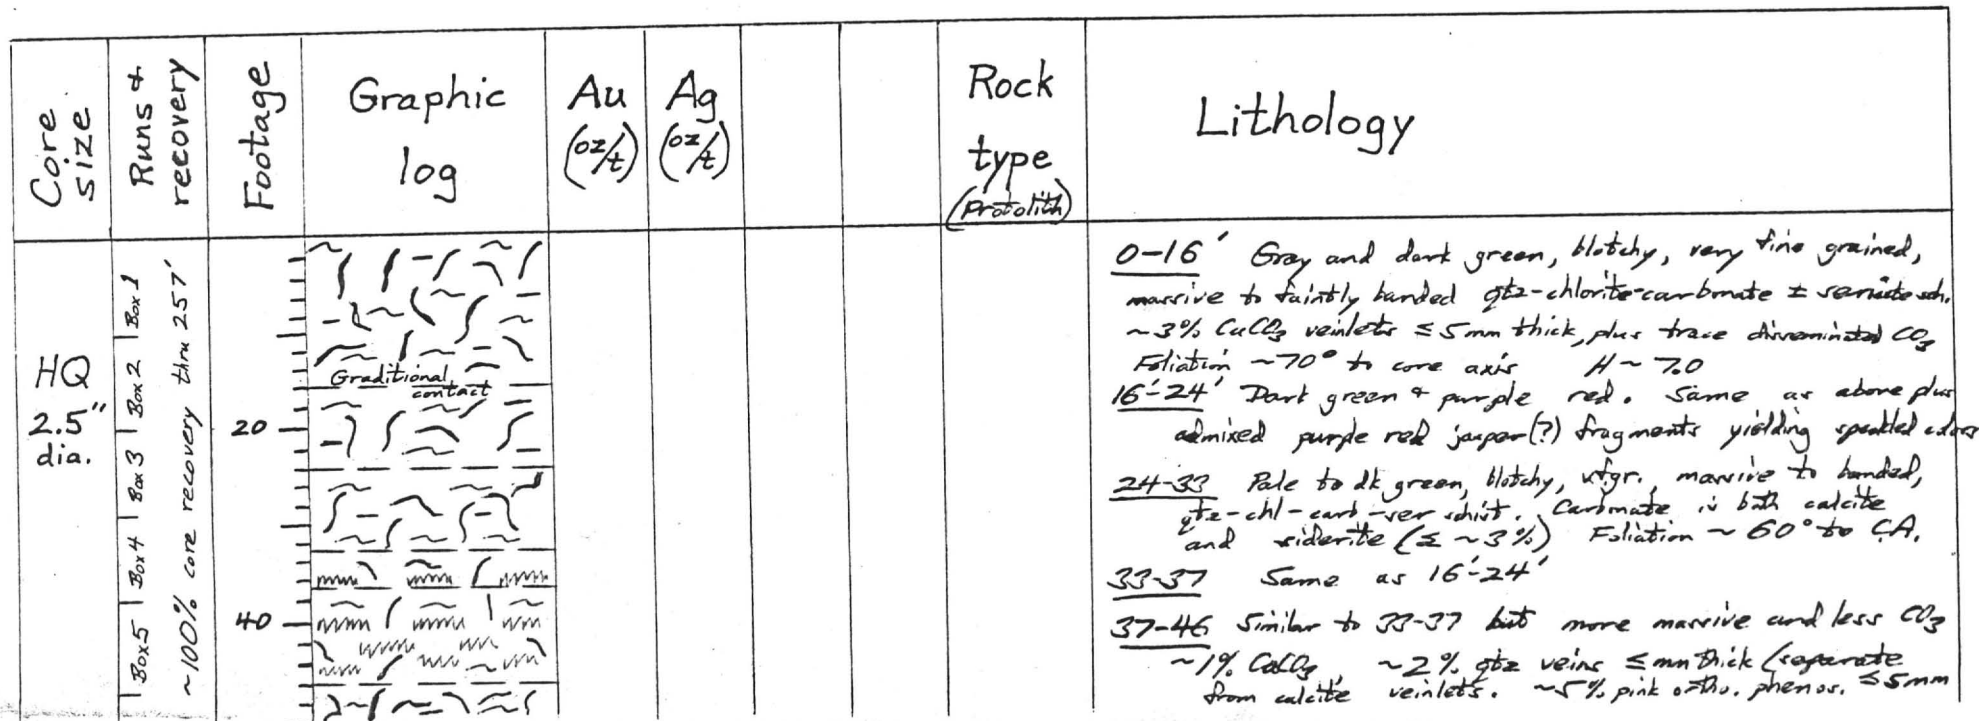 Core size
Runs & recovery
Footage
Graphic log
Au (oz/t)
Ag (oz/t)
Rock type (Protolith)
Lithology
HQ
2.5"
dia.
Box 1
Box 2
Box 3
Box 4
Box 5
~100% core recovery thru 257'
20
40
Graditional contact
0-16' Gray and dark green, blotchy, very fine grained,
massive to faintly banded qtz-chlorite-carbonate ± sericite sch.
~3% CaCO3 veinlets ≤ 5mm thick, plus trace disseminated CO3
Foliation ~70° to core axis H~7.0
16'-24' Dark green & purple red. Same as above plus
admixed purple red jasper(?) fragments yielding speckled colors
24-33 Pale to dk green, blotchy, vfgr., massive to banded,
qtz-chl-carb-ser schist. Carbonate is both calcite
and siderite (≤ ~3%) Foliation ~60° to C.A.
33-37 Same as 16'-24'
37-46 Similar to 33-37 but more massive and less CO3
~1% CaCO3, ~2% qtz veins ≤ mm thick (separate
from calcite veinlets. ~5% pink ortho. phenos. ≤5mm